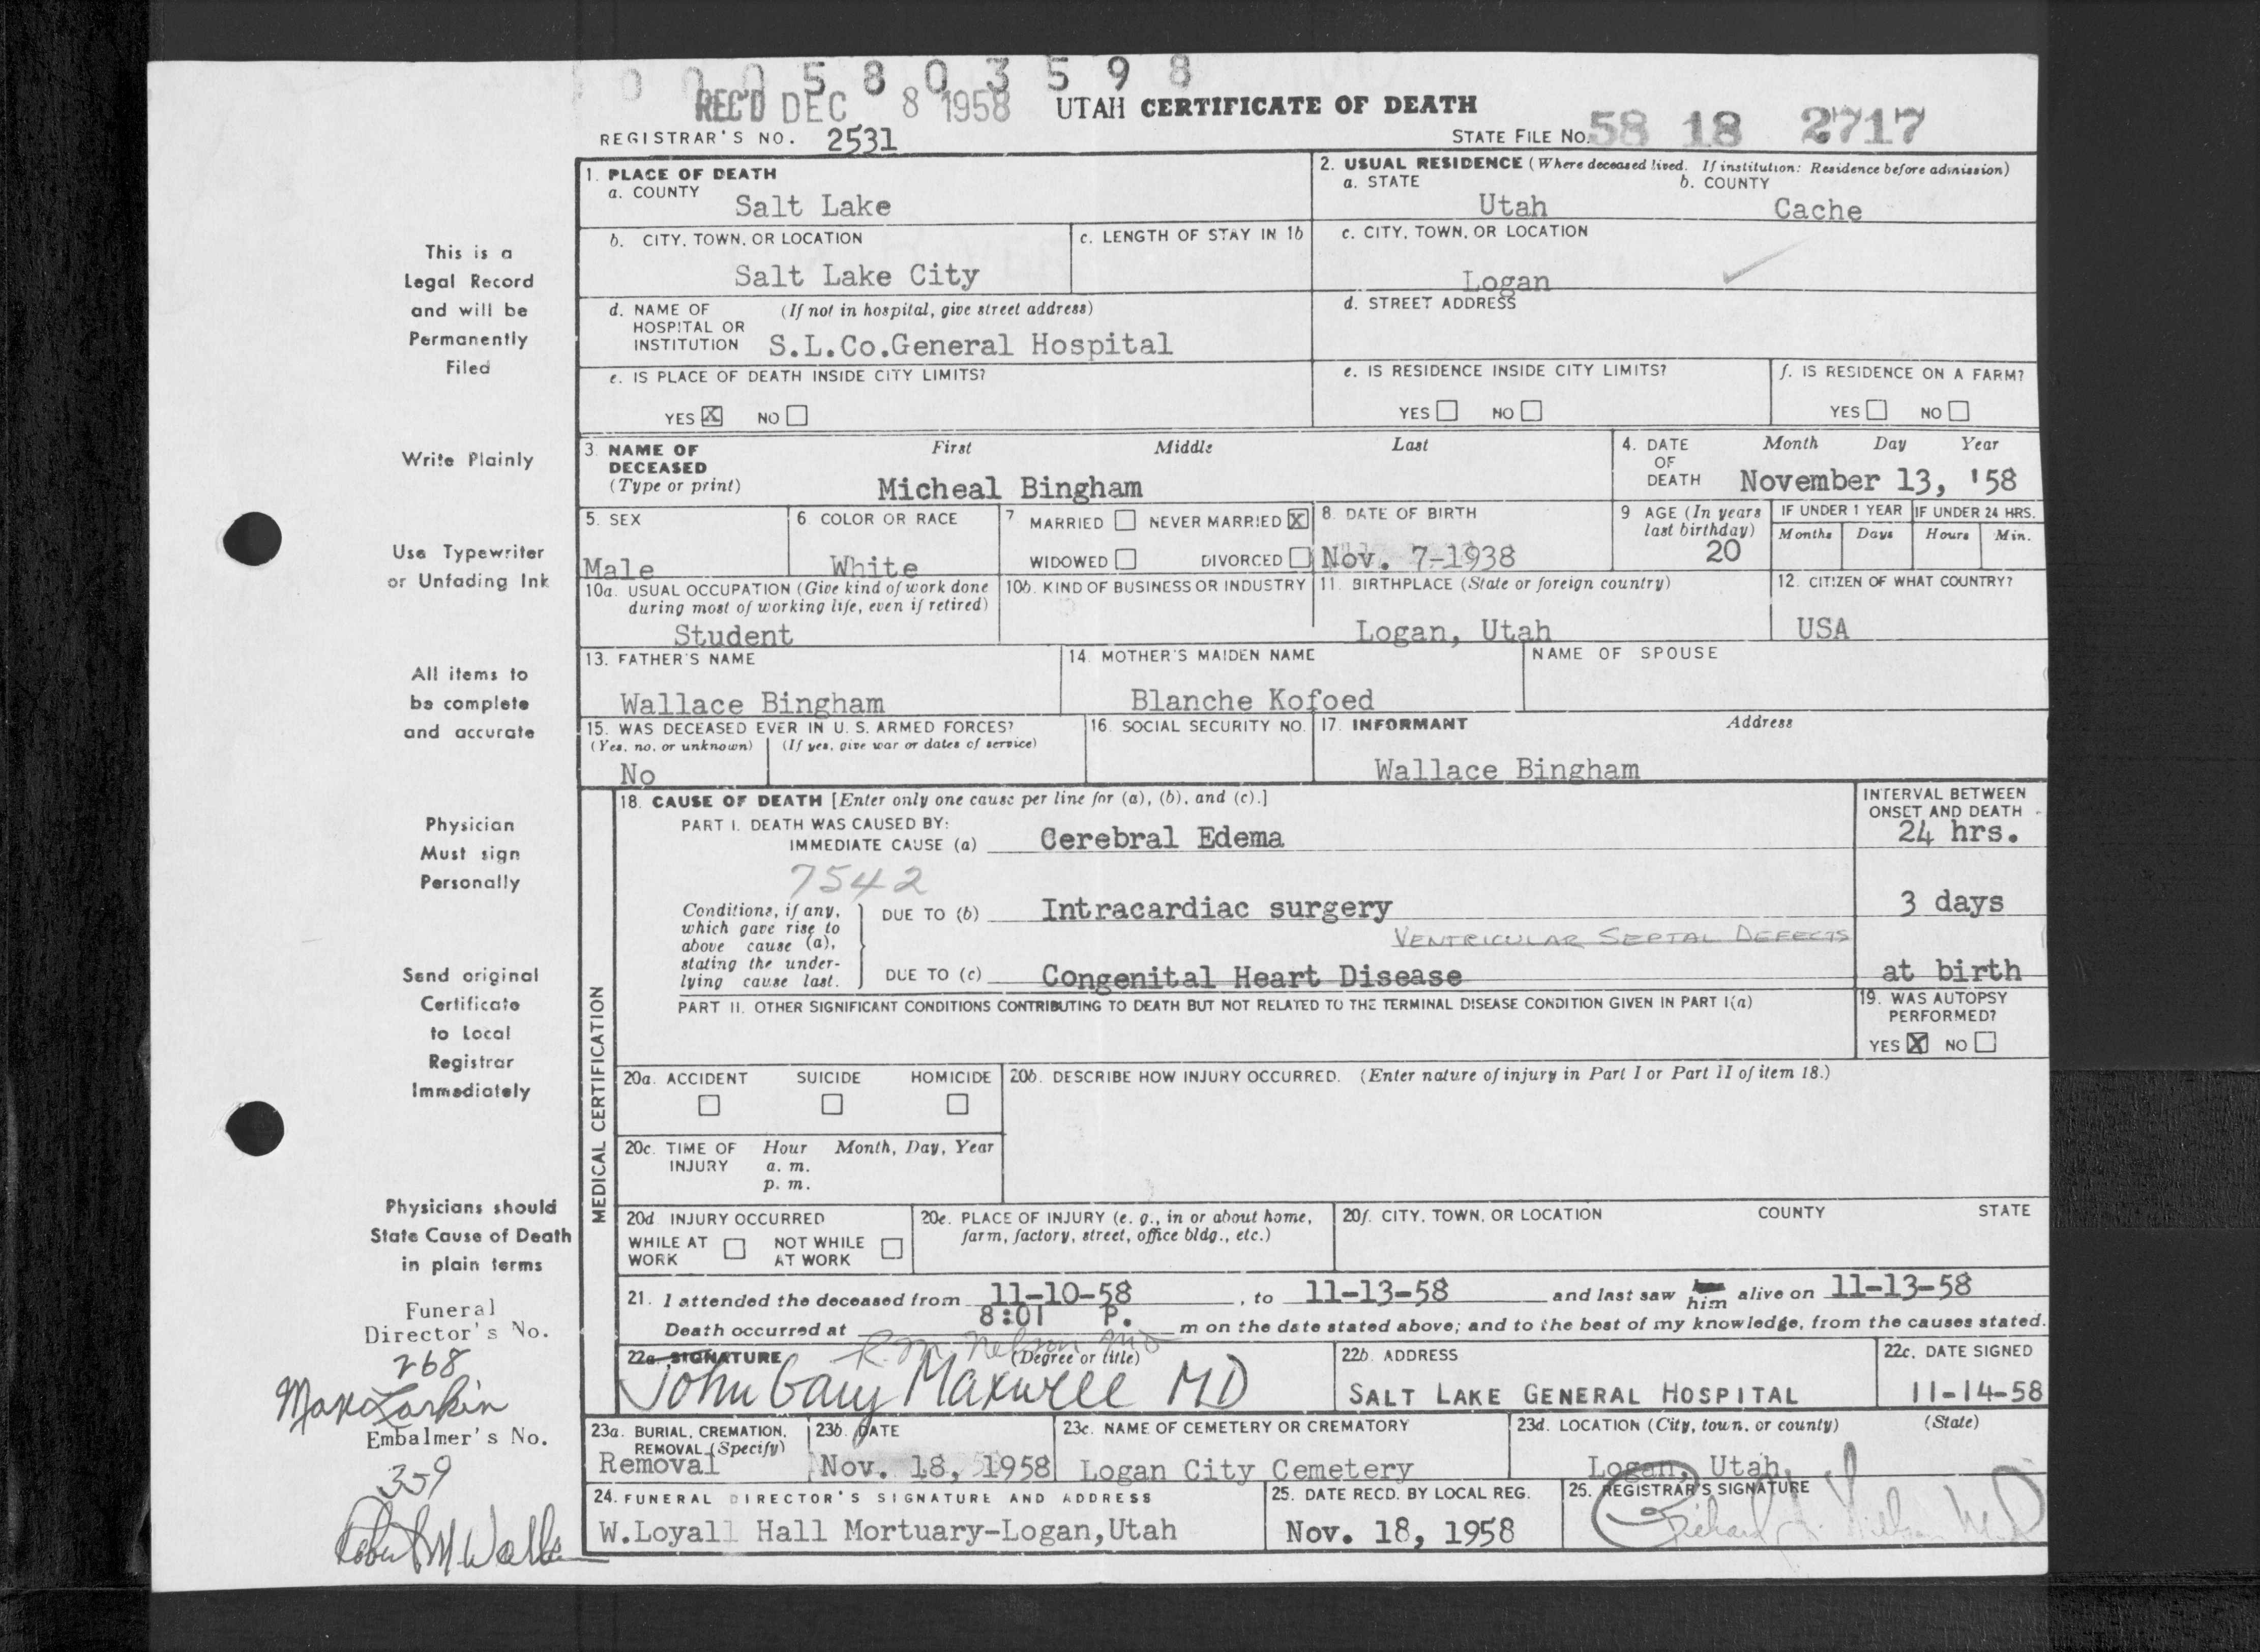 0 0 0 5 8 0 3 5 9 8
REC'D DEC 8 1958 UTAH CERTIFICATE OF DEATH
REGISTRAR'S NO. 2531 STATE FILE NO. 58 18 2717
This is a
Legal Record
and will be
Permanently
Filed
Write Plainly
Use Typewriter
or Unfading Ink
All items to
be complete
and accurate
Physician
Must sign
Personally
Send original
Certificate
to Local
Registrar
Immediately
Physicians should
State Cause of Death
in plain terms
Funeral
Director's No.
268
Max Larkin
Embalmer's No.
359
1. PLACE OF DEATH
a. COUNTY
Salt Lake
2. USUAL RESIDENCE (Where deceased lived. If institution: Residence before admission)
a. STATE b. COUNTY
Utah Cache
b. CITY, TOWN, OR LOCATION
Salt Lake City
c. LENGTH OF STAY IN 1b
c. CITY, TOWN, OR LOCATION
Logan
d. NAME OF (If not in hospital, give street address)
HOSPITAL OR
INSTITUTION S.L.Co.General Hospital
d. STREET ADDRESS
e. IS PLACE OF DEATH INSIDE CITY LIMITS?
YES X NO
e. IS RESIDENCE INSIDE CITY LIMITS?
YES NO
f. IS RESIDENCE ON A FARM?
YES NO
3. NAME OF First Middle Last
DECEASED
(Type or print) Micheal Bingham
4. DATE Month Day Year
OF
DEATH November 13, '58
5. SEX
Male
6. COLOR OR RACE
White
7 MARRIED NEVER MARRIED X
WIDOWED DIVORCED
8. DATE OF BIRTH
Nov. 7-1938
9 AGE (In years
last birthday)
20
IF UNDER 1 YEAR IF UNDER 24 HRS.
Months Days Hours Min.
10a. USUAL OCCUPATION (Give kind of work done
during most of working life, even if retired)
Student
10b. KIND OF BUSINESS OR INDUSTRY
11. BIRTHPLACE (State or foreign country)
Logan, Utah
12. CITIZEN OF WHAT COUNTRY?
USA
13. FATHER'S NAME
Wallace Bingham
14. MOTHER'S MAIDEN NAME
Blanche Kofoed
NAME OF SPOUSE
15. WAS DECEASED EVER IN U. S. ARMED FORCES?
(Yes, no, or unknown) (If yes, give war or dates of service)
No
16. SOCIAL SECURITY NO.
17. INFORMANT Address
Wallace Bingham
MEDICAL CERTIFICATION
18. CAUSE OF DEATH [Enter only one cause per line for (a), (b), and (c).]
INTERVAL BETWEEN
ONSET AND DEATH
PART I. DEATH WAS CAUSED BY:
IMMEDIATE CAUSE (a) Cerebral Edema 24 hrs.
7542
Conditions, if any,
which gave rise to
above cause (a),
stating the under-
lying cause last.
DUE TO (b) Intracardiac surgery 3 days
VENTRICULAR SEPTAL DEFECTS
DUE TO (c) Congenital Heart Disease at birth
PART II. OTHER SIGNIFICANT CONDITIONS CONTRIBUTING TO DEATH BUT NOT RELATED TO THE TERMINAL DISEASE CONDITION GIVEN IN PART I(a)
19. WAS AUTOPSY
PERFORMED?
YES X NO
20a. ACCIDENT SUICIDE HOMICIDE
20b. DESCRIBE HOW INJURY OCCURRED. (Enter nature of injury in Part I or Part II of item 18.)
20c. TIME OF Hour Month, Day, Year
INJURY a. m.
p. m.
20d INJURY OCCURRED
WHILE AT NOT WHILE
WORK AT WORK
20e. PLACE OF INJURY (e. g., in or about home,
farm, factory, street, office bldg., etc.)
20f. CITY, TOWN, OR LOCATION COUNTY STATE
21. I attended the deceased from 11-10-58, to 11-13-58 and last saw him alive on 11-13-58
Death occurred at 8:01 P. m on the date stated above; and to the best of my knowledge, from the causes stated.
R.M. Nelson MD
22a. SIGNATURE (Degree or title)
John Gary Maxwell MD
22b. ADDRESS
SALT LAKE GENERAL HOSPITAL
22c. DATE SIGNED
11-14-58
23a. BURIAL, CREMATION,
REMOVAL (Specify)
Removal
23b. DATE
Nov. 18, 1958
23c. NAME OF CEMETERY OR CREMATORY
Logan City Cemetery
23d. LOCATION (City, town, or county) (State)
Logan, Utah
24. FUNERAL DIRECTOR'S SIGNATURE AND ADDRESS
W.Loyall Hall Mortuary-Logan,Utah
25. DATE RECD. BY LOCAL REG.
Nov. 18, 1958
26. REGISTRAR'S SIGNATURE